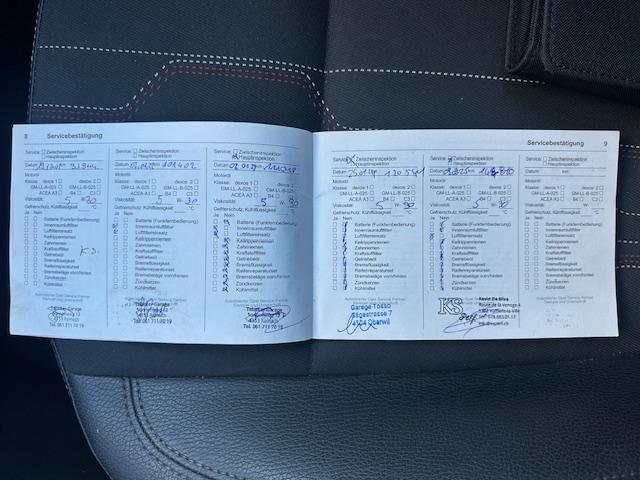 8 Servicebestätigung
Service: Zwischeninspektion
Hauptinspektion
Datum
Motoröl
Klasse: dexos 1 dexos 2
GM-LL-A-025 GM-LL-B-025
ACEA A3 B4 C3
Viskosität 5 W 30
Gefrierschutz, Kühlflüssigkeit °C
Ja Nein
Batterie (Funkfernbedienung)
Innenraumluftfilter
Luftfiltereinsatz
Keilrippenriemen
Zahnriemen
Kraftstofffilter
Getriebeöl
Bremsflüssigkeit
Reifenreparaturset
Bremsbeläge vorn/hinten
Zündkerzen
Kühlmittel
Tel. 061 711 70 19
Service: Zwischeninspektion
Hauptinspektion
Datum
Motoröl
Klasse: dexos 1 dexos 2
GM-LL-A-025 GM-LL-B-025
ACEA A3 B4 C3
Viskosität 5 W 30
Gefrierschutz, Kühlflüssigkeit °C
Ja Nein
Batterie (Funkfernbedienung)
Innenraumluftfilter
Luftfiltereinsatz
Keilrippenriemen
Zahnriemen
Kraftstofffilter
Getriebeöl
Bremsflüssigkeit
Reifenreparaturset
Bremsbeläge vorn/hinten
Zündkerzen
Kühlmittel
Tel. 061 711 70 19
Service: Zwischeninspektion
Hauptinspektion
Datum
Motoröl
Klasse: dexos 1 dexos 2
GM-LL-A-025 GM-LL-B-025
ACEA A3 B4 C3
Viskosität 5 W 30
Gefrierschutz, Kühlflüssigkeit °C
Ja Nein
Batterie (Funkfernbedienung)
Innenraumluftfilter
Luftfiltereinsatz
Keilrippenriemen
Zahnriemen
Kraftstofffilter
Getriebeöl
Bremsflüssigkeit
Reifenreparaturset
Bremsbeläge vorn/hinten
Zündkerzen
Kühlmittel
Autorisierter Opel Service Partner
Tel. 061 711 70 19
Servicebestätigung 9
Service: Zwischeninspektion
Hauptinspektion
Datum
Motoröl
Klasse: dexos 1 dexos 2
GM-LL-A-025 GM-LL-B-025
ACEA A3 B4 C3
Viskosität 5 W 30
Gefrierschutz, Kühlflüssigkeit °C
Ja Nein
Batterie (Funkfernbedienung)
Innenraumluftfilter
Luftfiltereinsatz
Keilrippenriemen
Zahnriemen
Kraftstofffilter
Getriebeöl
Bremsflüssigkeit
Reifenreparaturset
Bremsbeläge vorn/hinten
Zündkerzen
Kühlmittel
Autorisierter Opel Service Partner
Garage Tosso
Sägestrasse 7
4104 Oberwil
Service: Zwischeninspektion
Hauptinspektion
Datum
Motoröl
Klasse: dexos 1 dexos 2
GM-LL-A-025 GM-LL-B-025
ACEA A3 B4 C3
Viskosität 5 W 30
Gefrierschutz, Kühlflüssigkeit °C
Ja Nein
Batterie (Funkfernbedienung)
Innenraumluftfilter
Luftfiltereinsatz
Keilrippenriemen
Zahnriemen
Kraftstofffilter
Getriebeöl
Bremsflüssigkeit
Reifenreparaturset
Bremsbeläge vorn/hinten
Zündkerzen
Kühlmittel
KS
Perf
Kevin Da Silva
Service: Zwischeninspektion
Hauptinspektion
Datum km
Motoröl
Klasse: dexos 1 dexos 2
GM-LL-A-025 GM-LL-B-025
ACEA A3 B4 C3
Viskosität W-
Gefrierschutz, Kühlflüssigkeit °C
Ja Nein
Batterie (Funkfernbedienung)
Innenraumluftfilter
Luftfiltereinsatz
Keilrippenriemen
Zahnriemen
Kraftstofffilter
Getriebeöl
Bremsflüssigkeit
Reifenreparaturset
Bremsbeläge vorn/hinten
Zündkerzen
Kühlmittel
Autorisierter Opel Service Partner